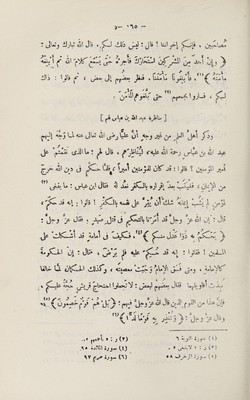 — ١٦٥ —
مُصَاحِبين، فإنكم إخواننا! قال: ليس ذلك لكم. قال الله تبارك وتعالى:
﴿وَإِنْ أَحَدٌ مِنَ الْمُشْرِكِينَ اسْتَجَارَكَ فَأَجِرْهُ حَتَّى يَسْمَعَ كَلَامَ اللهِ ثم أَبْلِغْهُ
مَأْمَنَهُ﴾(١). فأبلِغونا مأمننا. فنظر بعضهم إلى بعض، ثم قالوا: ذلك
لكم. فساروا بجمعهم(٢) حتى بَلَّغوهم المَأْمَن.
[مناظرة عبد الله بن عباس لهم]
وذكر أهل العلم من غير وجه أنَّ عليًّا رضى الله عنه لما وجَّه إليهم
عبد الله بن عباس رحمة الله عليه، ليُناظرهم، قال لهم: ما الذى نَقَمْتُم على
أمير المؤمنين؟ قالوا: قد كان للمؤمنين أميراً، فلمَّا حكَّم فى دين الله خرج
من الإيمان، فليَتُبْ بعدَ إقراره بالكفر نَعُدْ له. فقال ابن عباس: ما ينبغى(٣)
لمؤمن لم يَشُبْ إيمانَه شكٌّ أن يُقِرَّ على نفسه بالكفر. قالوا: إنه قد حكَّم.
قال: إن الله عزَّ وجلَّ قد أمرنا بالتحكيم فى قتل صيد، فقال عزَّ وجل:
﴿يَحْكُمُ بِهِ ذَوَا عَدْلٍ مِنْكُمْ﴾(٤)، فكيف فى إمامةٍ قد أشكلت على
المسلمين! فقالوا: إنه قد حُكِمَ عليه فلم يَرْضَ. فقال: إن الحكومة
كالإمامة، ومتى فسق الإمامُ وجبت معصيته، وكذلك الحكمان لما خالفا
نُبذت أقاويلهما. فقال بعضهم لبعض: لا تجعلوا احتجاج قريش حجةً عليكم،
فإن هذا من القوم الذين قال الله عزَّ وجلَّ فيهم: ﴿بَلْ هُمْ قَوْمٌ خَصِمُونَ﴾(٥)
وقال عزَّ وجلَّ: ﴿وَتُنْذِرَ بِهِ قَوْمًا لُدًّا﴾(٦)
(١) سورة التوبة ٦
(٣) ر: «لا ينبغى».
(٥) سورة الزخرف ٥٨
(٤) سورة المائدة ٩٥
(٦) سورة مريم ٩٧